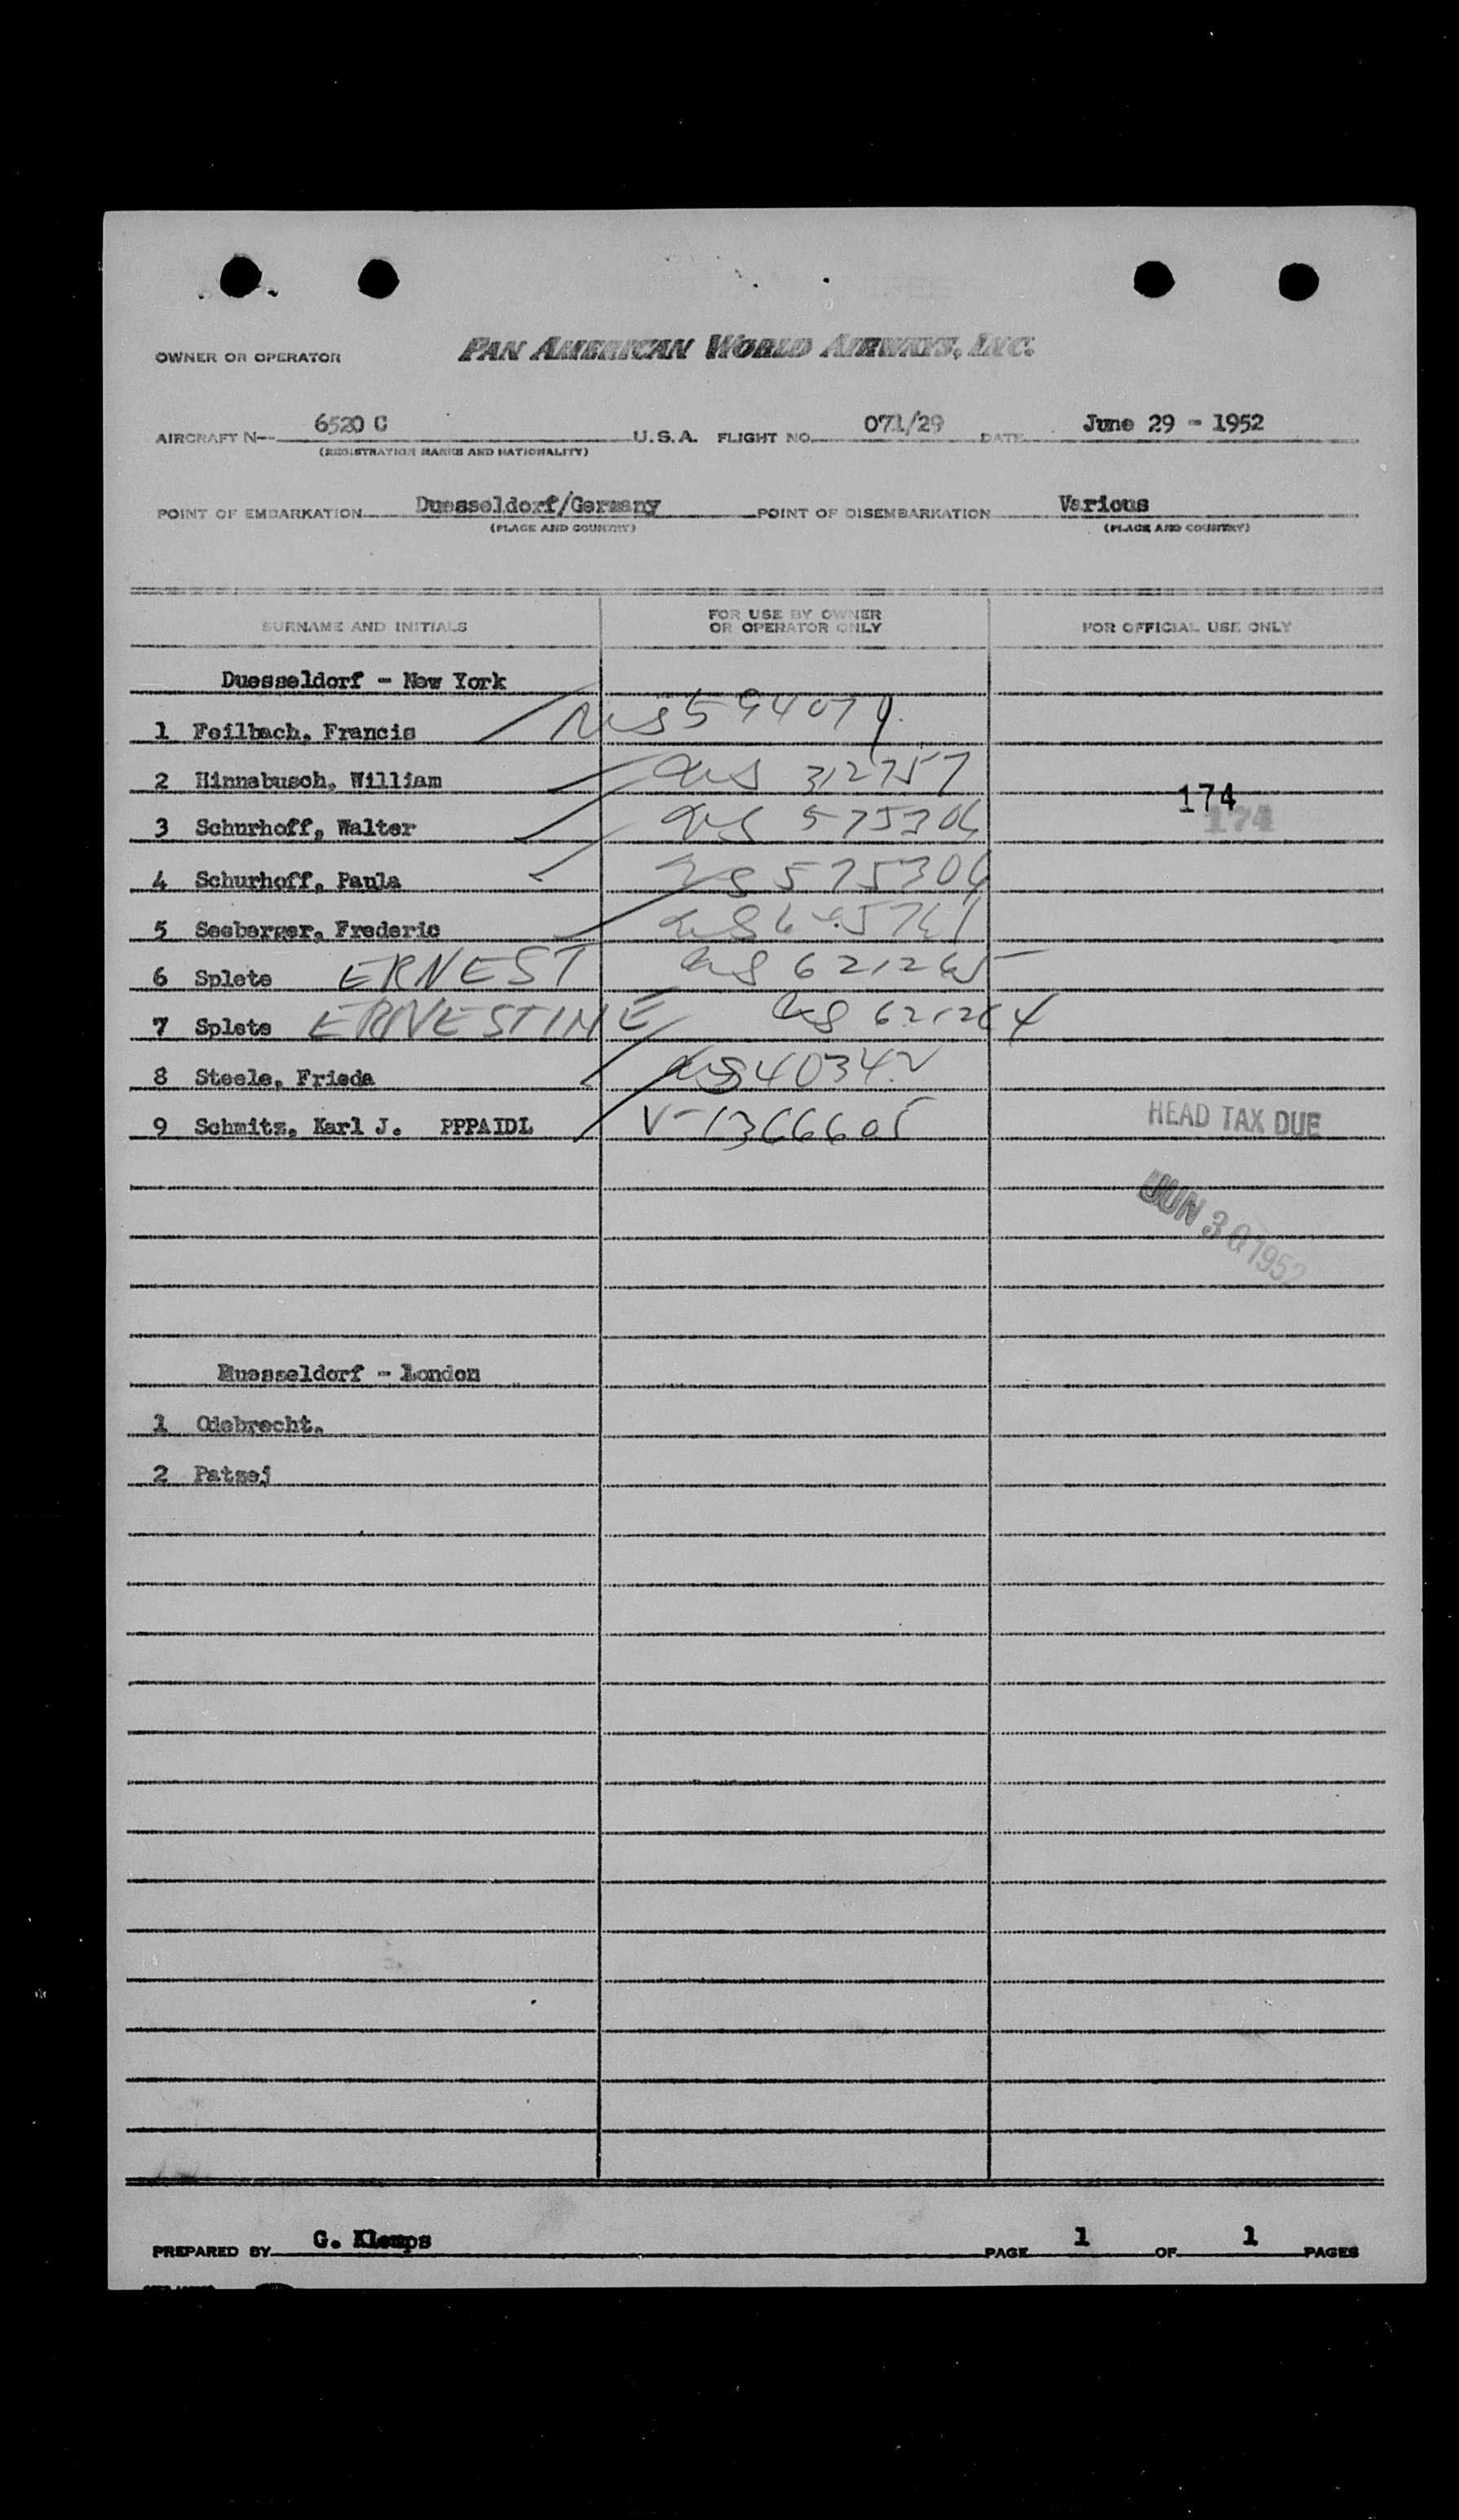 OWNER OR OPERATOR PAN AMERICAN WORLD AIRWAYS, INC.
AIRCRAFT N— 6520 C U.S.A. FLIGHT NO. 071/29 DATE June 29 - 1952
(REGISTRATION MARKS AND NATIONALITY)
POINT OF EMBARKATION Duesseldorf/Germany POINT OF DISEMBARKATION Various
(PLACE AND COUNTRY) (PLACE AND COUNTRY)
SURNAME AND INITIALS FOR USE BY OWNER OR OPERATOR ONLY FOR OFFICIAL USE ONLY
Duesseldorf - New York
1 Feilbach, Francis
2 Hinnebusch, William us 312757
174
174
3 Schurhoff, Walter us 575306
4 Schurhoff, Paula us 575306
5 Seeberger, Frederic
6 Splete ERNEST us 621265
7 Splete ERNESTINE us 621264
8 Steele, Frieda us 40342
9 Schmitz, Karl J. PPPAIDL V-1366605
HEAD TAX DUE
JUN 30 1952
Duesseldorf - London
1 Odebrecht,
2 Patzej
PREPARED BY G. Klemps PAGE 1 OF 1 PAGES